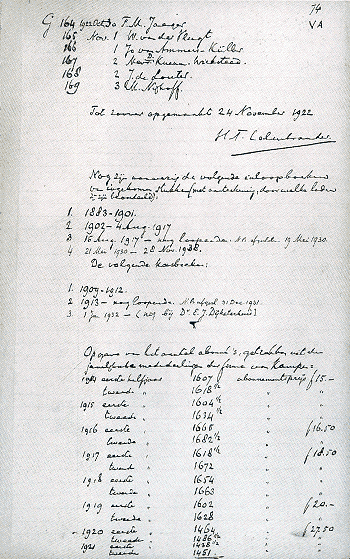 74
VA
G 164 F. M. Jaeger
165 Nov. 1 W. van der Vlugt
166 1 Jo van Ammers-Küller
167 2 Kuenen-Wicksteed
168 2 J. de Louter
169 3 M. Nijhoff.
Tot zoover opgemaakt 24 November 1922
H. T. Colenbrander
Nog zijn aanwezig de volgende inloopboeken
van ingekomen stukken (met aanteekening, door welke leden
zijn behandeld).
1. 1883-1901.
2 1902-4 Aug. 1917
3 16 Aug. 1917 - nog loopende. 19 Mei 1930.
4 21 Mei 1930 - 28 Nov. 1938.
De volgende kasboeken:
1. 1909-1912.
2 1913 - nog loopende. 31 Dec 1931.
3 1 Jan 1932 - (nog bij Dr E. J. Dijksterhuis)
Opgave van het aantal abonné's, getrokken uit den
jaarlijksche mededeelingen der firma van Kampen:
1914 eerste halfjaar 1607 abonnementsprijs f 15.-
tweede " 1618 1/2 "
1915 eerste " 1604 1/2 "
tweede " 1634 1/2 "
1916 eerste " 1665 " f 16.50
tweede " 1682 1/2 "
1917 eerste " 1618 1/2 " f 18.50
tweede " 1672 "
1918 eerste " 1654 "
tweede " 1663 "
1919 eerste " 1602 " f 20.-
tweede " 1628 "
1920 eerste " 1464 " f 27.50
tweede " 1486 1/2 "
1921 eerste " 1438 1/2 "
tweede " 1451 "